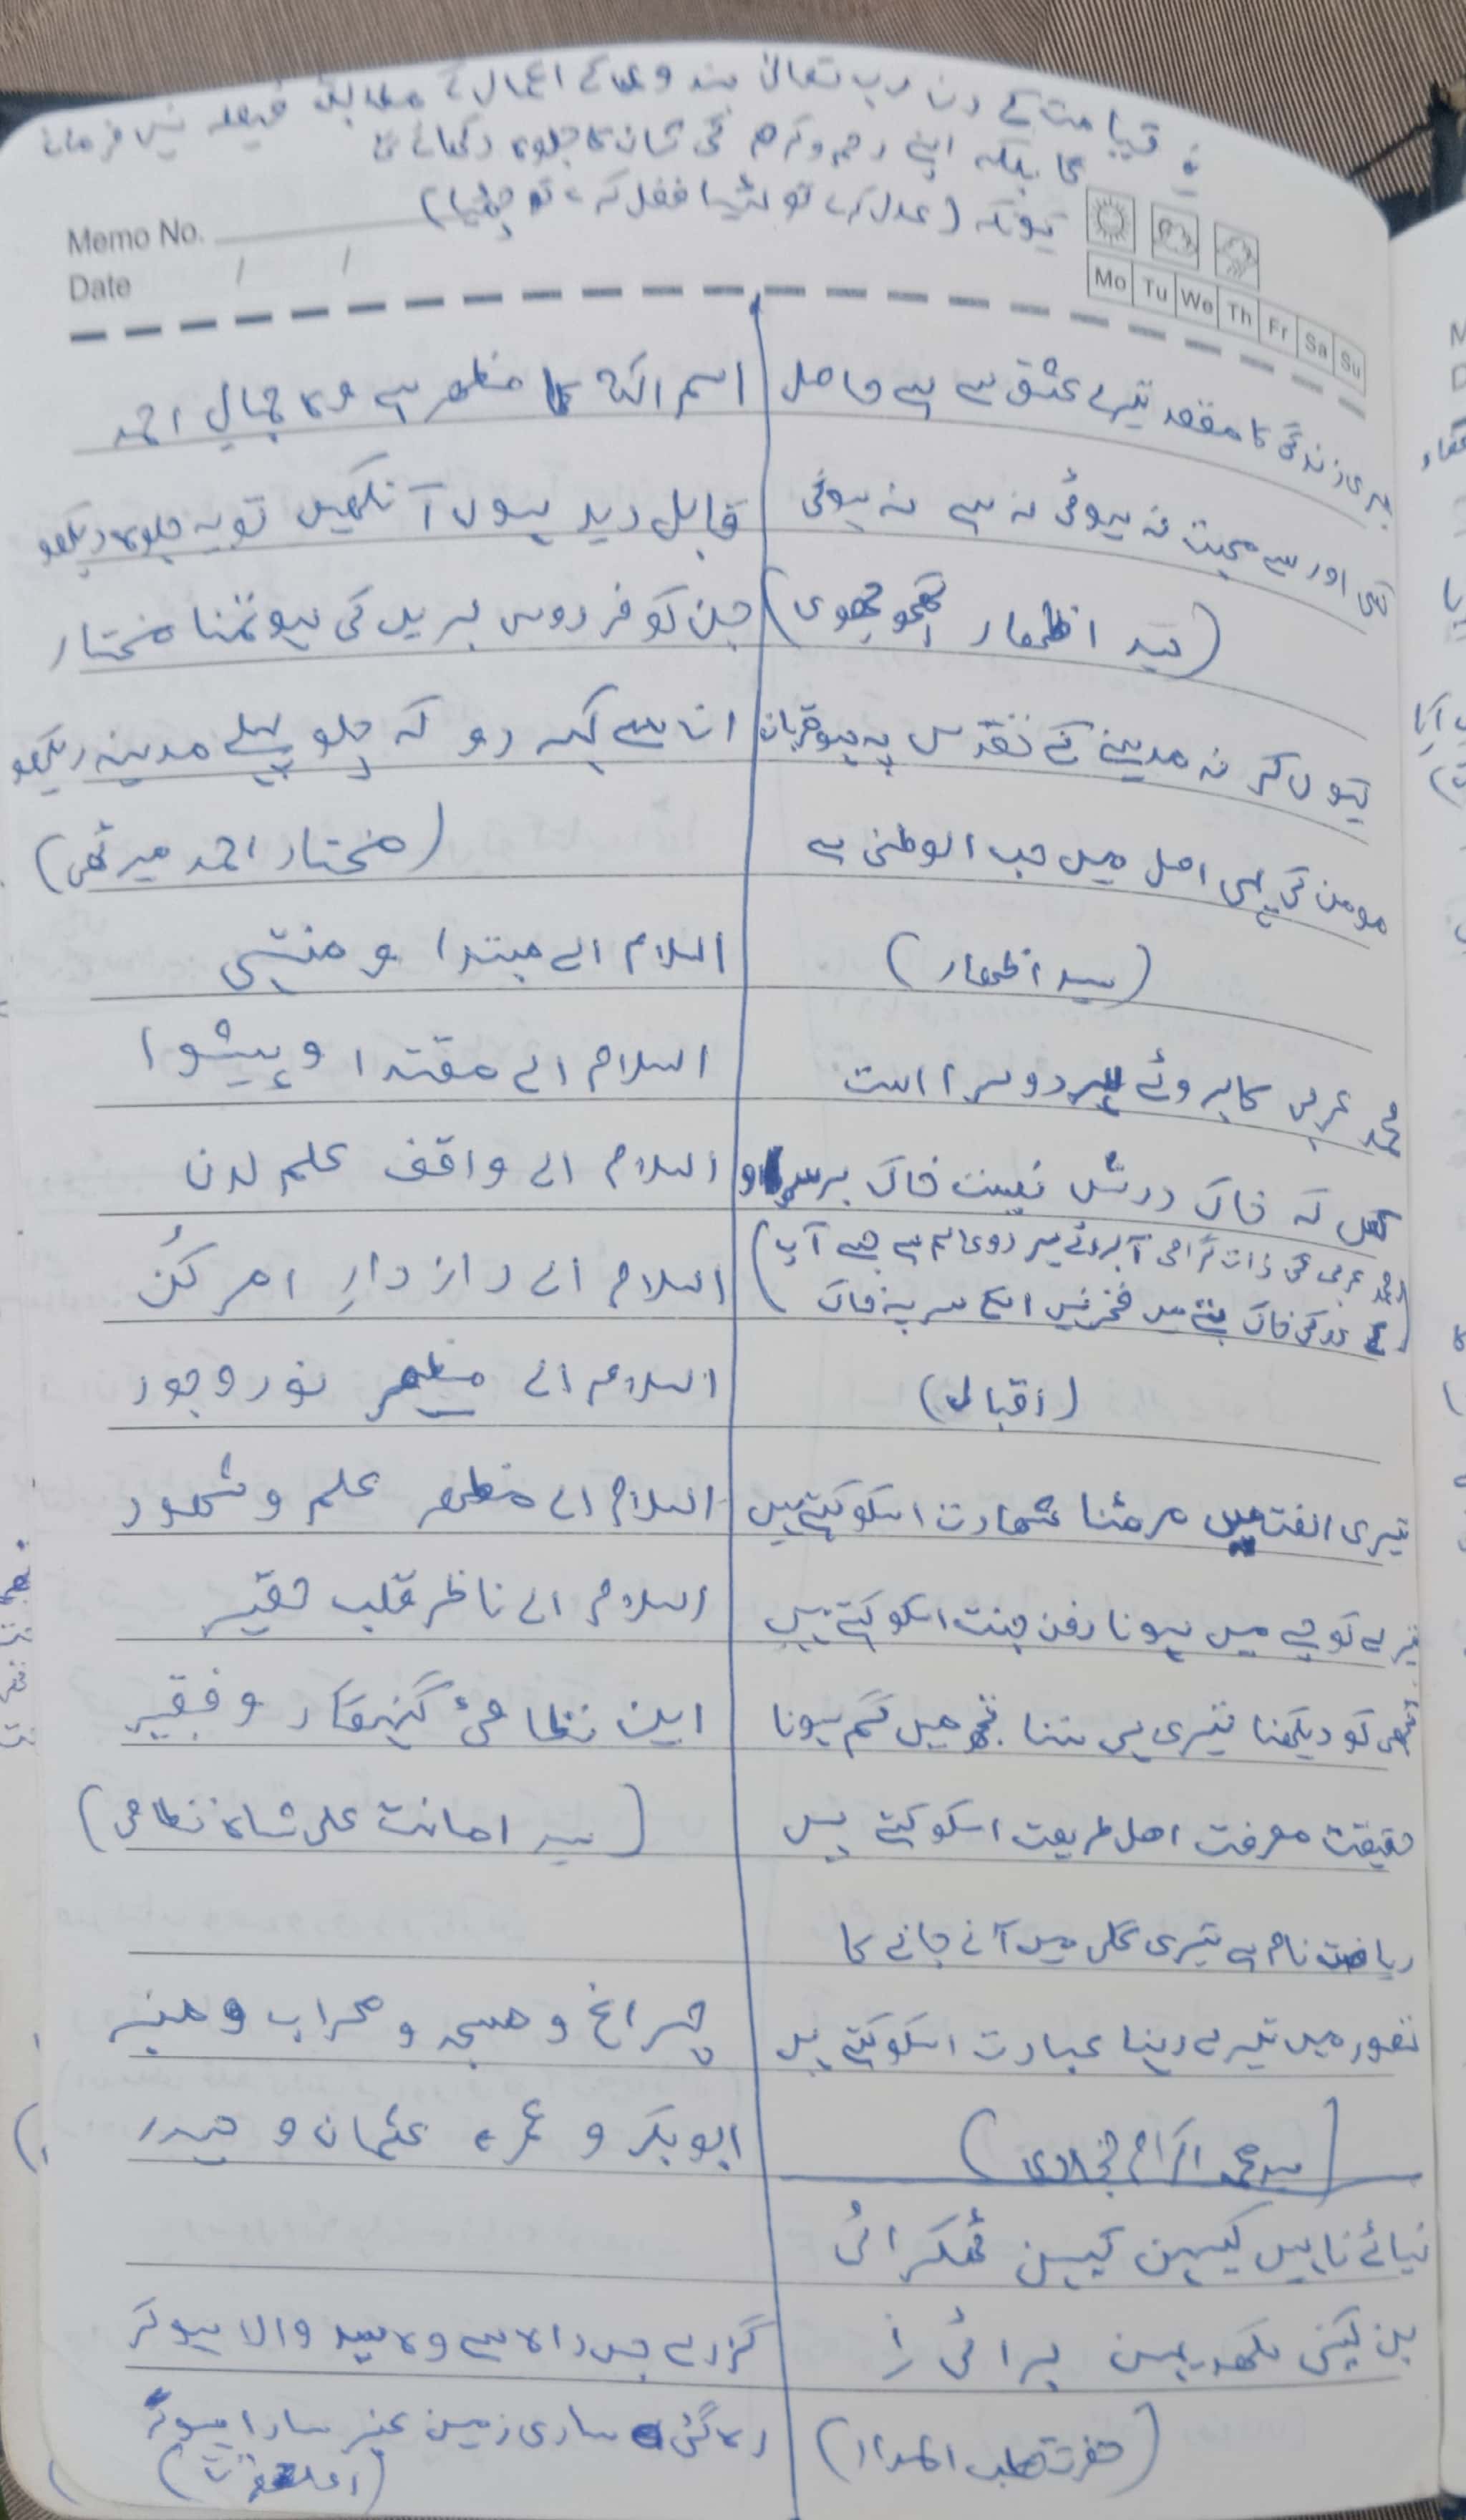 قیامت کے دن رب تعالیٰ بندوں کے اعمال کے مطابق فیصلہ نہیں فرمائے
گا بلکہ اپنے رحم و کرم کی شان کا جلوہ دکھائے گا
کیونکہ (عدل کرے تو لٹیا فضل کرے تو چھٹیا)
Memo No.
Date / /
Mo Tu We Th Fr Sa Su
میری زندگی کا مقصد تیرے عشق سے ہے حاصل
کسی اور سے محبت نہ ہوئی نہ ہے نہ ہوگی
(سید اظہار کچھوچھوی)
کیوں کر نہ مدینے کے تقدس پہ ہو قربان
مومن کی یہی اصل میں حب الوطنی ہے
(سید اظہار)
محمد عربی کابروئے ہر دو سرا است
کسی کہ خاک درش نیست خاک بر سر او
(محمد عربی کی ذات گرامی آبروئے ہر دو عالم ہے جسے آپ
کے در کی خاک بننے میں فخر نہیں اسکے سر پہ خاک)
(اقبال)
تیری الفت میں مر مٹنا شہادت اسکو کہتے ہیں
تیرے کوچے میں ہونا دفن جنت اسکو کہتے ہیں
تجھی کو دیکھنا تیری ہی سننا تجھ میں گم ہونا
حقیقت معرفت اہل طریقت اسکو کہتے ہیں
ریاضت نام ہے تیری گلی میں آنے جانے کا
تصور میں تیرے رہنا عبادت اسکو کہتے ہیں
نیائے ناہیں کیہین کیہین ٹھکرائی
بن کہنی لکھدیہن برائی را
اسم اللہ کا مظہر ہے وہ جمال احمد
قابل دید ہوں آنکھیں تو یہ جلوہ دیکھو
جن کو فردوس بریں کی ہو تمنا مختار
ان سے کہہ دو کہ چلو پہلے مدینہ دیکھو
(مختار احمد میرٹھی)
السلام اے مبتدا و منتہی
السلام اے مقتدا و پیشوا
السلام اے واقف علم لدن
السلام اے رازدارِ امر کُن
السلام اے مظہر نور وجود
السلام اے مظہر علم و شہود
السلام اے ناظر قلب حقیر
این نظامیٔ گنہگار و فقیر
(سید امانت علی شاہ نظامی)
چراغ و مسجد و محراب و منبر
ابوبکر و عمر، عثمان و حیدر
گزرے جس راہ سے وہ سید والا ہو کر
رہ گئی ساری زمین عنبر سارا ہو کر